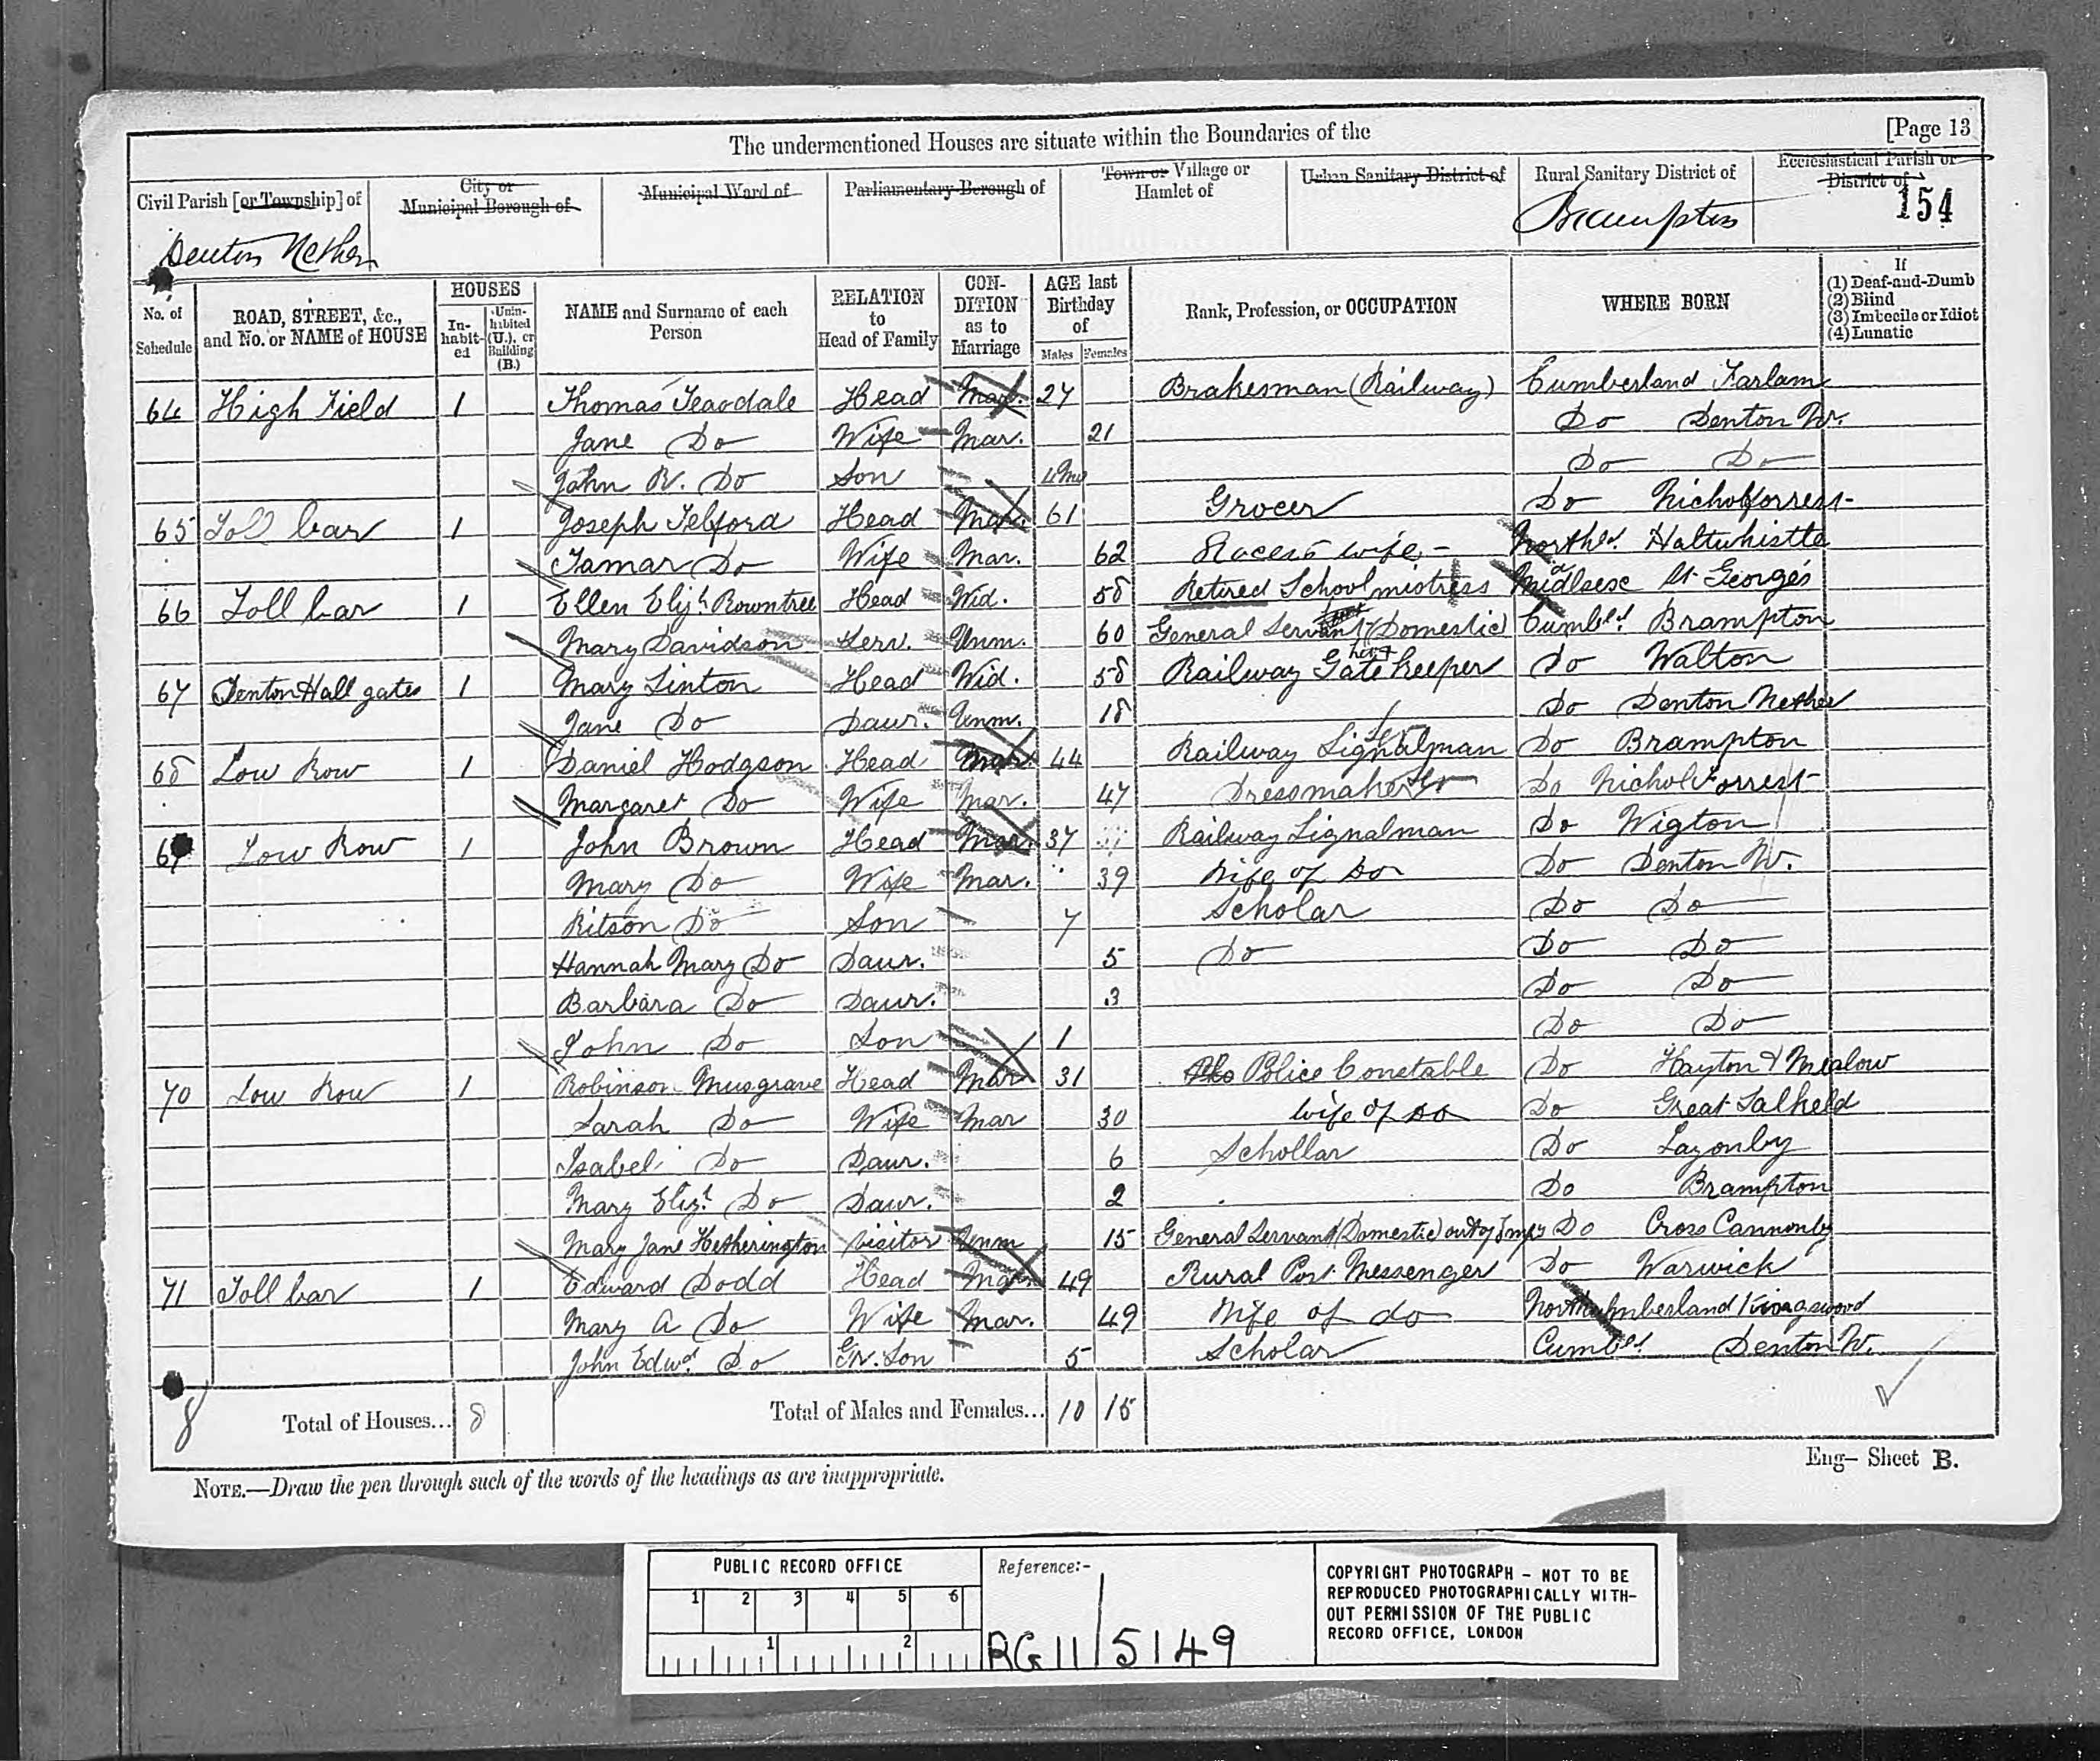 The undermentioned Houses are situate within the Boundaries of the [Page 13
Civil Parish [or Township] of City or Municipal Borough of Municipal Ward of Parliamentary Borough of Town or Village or Hamlet of Urban Sanitary District of Rural Sanitary District of Ecclesiastical Parish or District of
Denton Nether Brampton 154
No. of Schedule ROAD, STREET, &c., and No. or NAME of HOUSE HOUSES In-habit-ed Unin-habited (U.), or Building (B.) NAME and Surname of each Person RELATION to Head of Family CON-DITION as to Marriage AGE last Birthday of Males Females Rank, Profession, or OCCUPATION WHERE BORN If (1) Deaf-and-Dumb (2) Blind (3) Imbecile or Idiot (4) Lunatic
64 High Field 1 Thomas Teasdale Head Mar. 27 Brakesman (Railway) Cumberland Farlam
Jane Do Wife Mar. 21 Do Denton N.
John R. Do Son 4Mo Do Do
65 Toll bar 1 Joseph Telford Head Mar. 61 Grocer Do Nicholforrest
Tamar Do Wife Mar. 62 wife Northd. Haltwhistle
66 Toll bar 1 Ellen Elizh Rowntree Head Wid. 58 Retired Schoolmistress Midlsesex St Georges
Mary Davidson Serv. Unm. 60 General Servant (Domestic) Cumbld. Brampton
67 Denton Hall gates 1 Mary Linton Head Wid. 58 Railway Gate Keeper Do Walton
Jane Do Daur. Unm. 18 Do Denton Nether
68 Low Row 1 Daniel Hodgson Head Mar. 44 Railway Signalman Do Brampton
Margaret Do Wife Mar. 47 Dressmaker Do Nichol Forrest
69 Low Row 1 John Brown Head Mar. 37 Railway Signalman Do Wigton
Mary Do Wife Mar. 39 Wife of Do Do Denton N.
Ritson Do Son 7 Scholar Do Do
Hannah Mary Do Daur. 5 Do Do Do
Barbara Do Daur. 3 Do Do
John Do Son 1 Do Do
70 Low Row 1 Robinson Musgrave Head Mar 31 Police Constable Do Hayton & Mealow
Sarah Do Wife Mar 30 wife of Do Do Great Salkeld
Isabel Do Daur. 6 Schollar Do Lazonby
Mary Elizh. Do Daur. 2 Do Brampton
Mary Jane Hetherington Visitor Unm 15 General Servant (Domestic) out of Empy Do Cross Cannonby
71 Toll bar 1 Edward Dodd Head Mar. 49 Rural Post Messenger Do Warwick
Mary A Do Wife Mar. 49 Wife of do Northumberland Kingswood
John Edwd. Do Gr. Son 5 Scholar Cumbld. Denton N.
8 Total of Houses... 8 Total of Males and Females... 10 15
Eng- Sheet B.
NOTE.—Draw the pen through such of the words of the headings as are inappropriate.
PUBLIC RECORD OFFICE
1 2 3 4 5 6
1 2
Reference:-
RG 11 / 5149
COPYRIGHT PHOTOGRAPH - NOT TO BE
REPRODUCED PHOTOGRAPHICALLY WITH-
OUT PERMISSION OF THE PUBLIC
RECORD OFFICE, LONDON